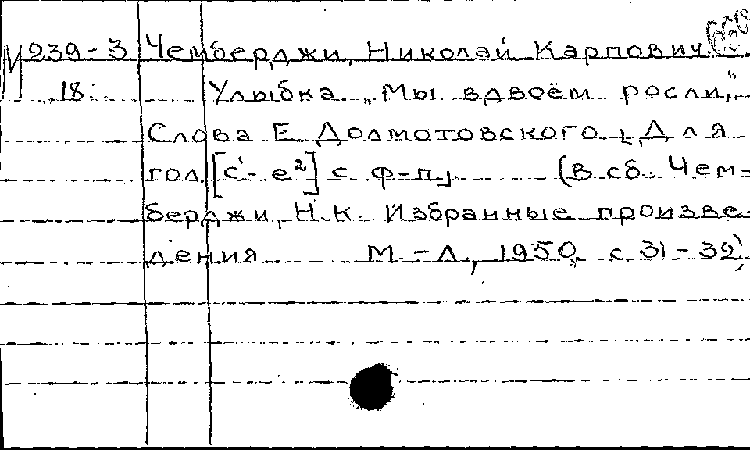 М239-3 Чемберджи, Николай Карпович.
18. Улыбка „Мы вдвоём росли,"
Слова Е. Долматовского. Для
гол. [c'-e²] с ф-п. (В сб. Чем-
берджи, Н.К. Избранные произве-
дения М.-Л., 1950, с 31-32)